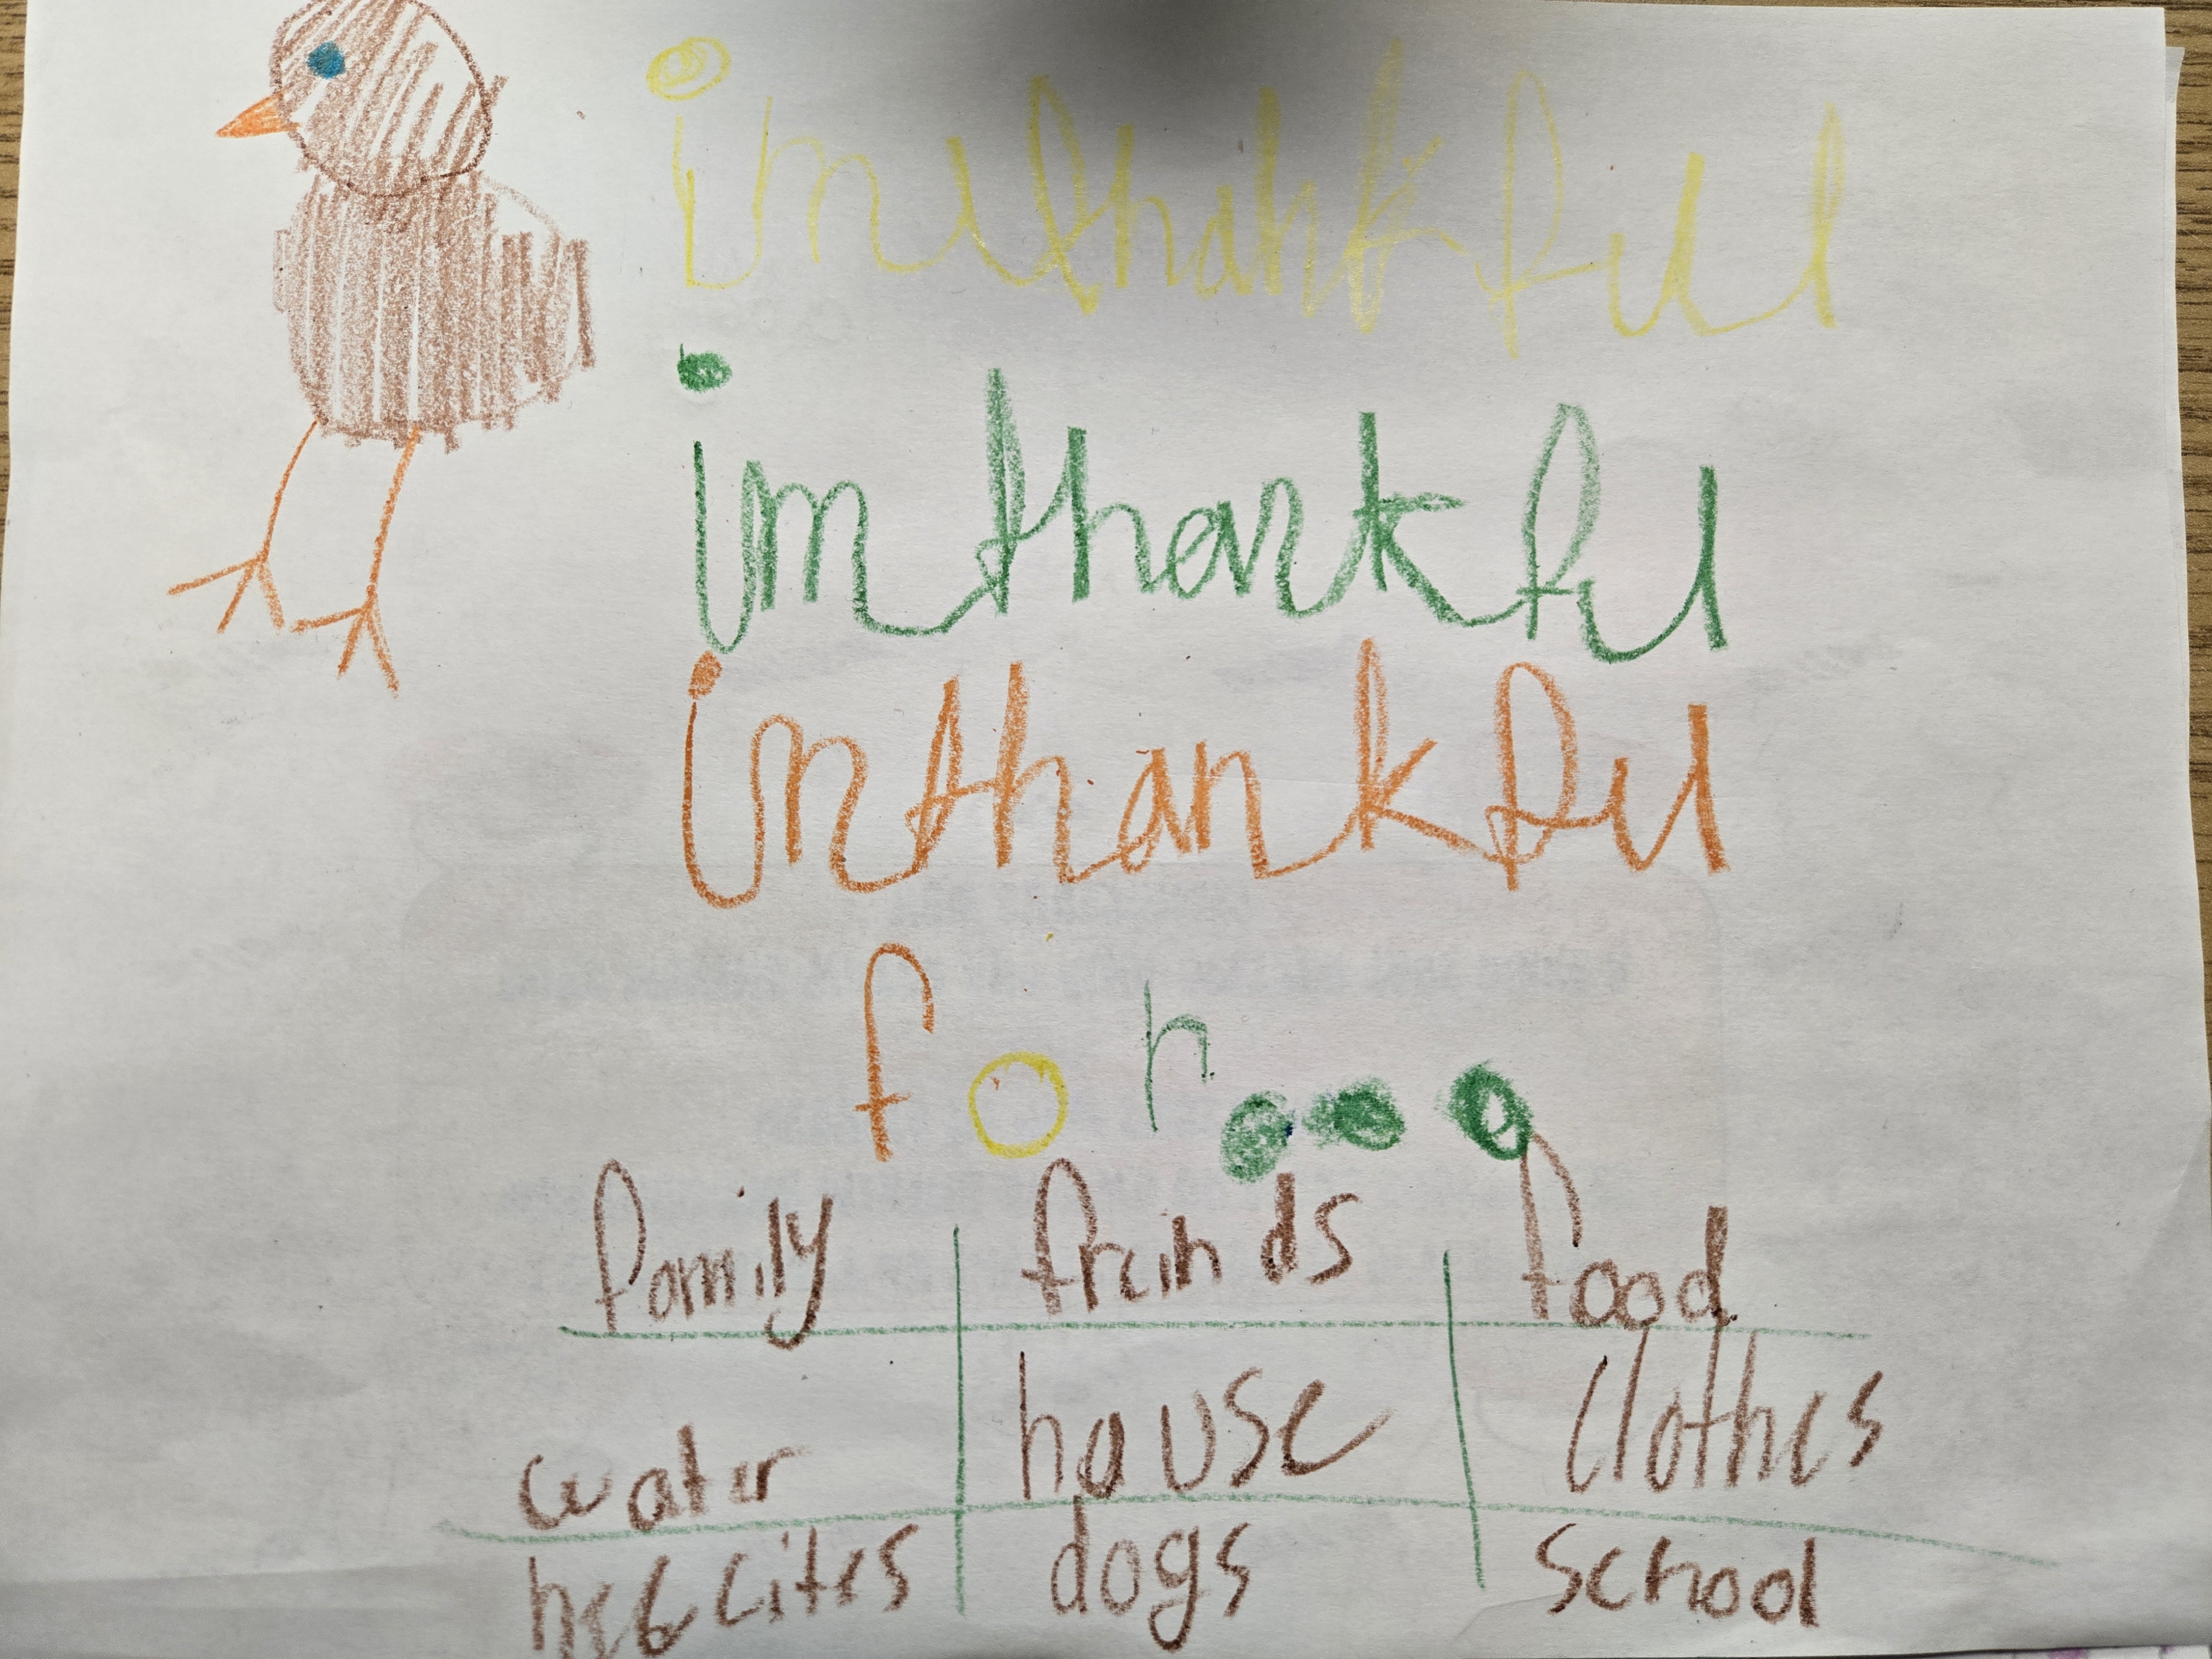 im thankful
im thankful
im thankful
for...
family freinds food
water house clothes
dogs school